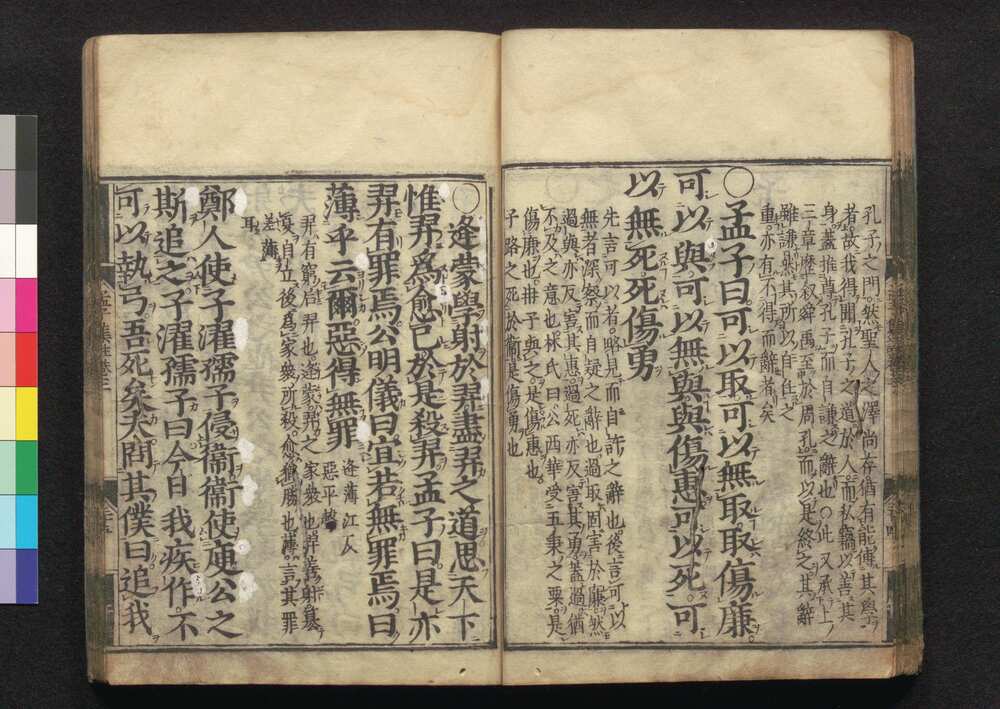 孔子之門然聖人之澤尚存猶有能傳其學
者故我得聞孔子之道於人而私竊以善其
身蓋推尊孔子而自謙之辭也○此又承上
三章歷叙舜禹至於周孔而以是終之其辭
雖謙然其所以自任之
重亦有不得而辭者矣
○孟子曰可以取可以無取取傷廉
可以與可以無與與傷惠可以死可
以無死死傷勇
先言可以者略見而自許之辭也後言可以
無者深察而自疑之辭也過取固害於廉然
過與亦反害其惠過死亦反害其勇蓋過猶
不及之意也林氏曰公西華受五秉之粟是
傷廉也冉子與之是傷惠也
子路之死於衛是傷勇也
○逄蒙學射於羿盡羿之道思天下
惟羿爲愈己於是殺羿孟子曰是亦
羿有罪焉公明儀曰宜若無罪焉曰
薄乎云爾惡得無罪
逄薄江反
惡平聲
羿有窮后羿也逄蒙羿之家衆也羿善射篡
夏自立後爲家衆所殺愈猶勝也薄言其罪
差薄
耳
鄭人使子濯孺子侵衞衞使庾公之
斯追之子濯孺子曰今日我疾作不
可以執弓吾死矣夫問其僕曰追我